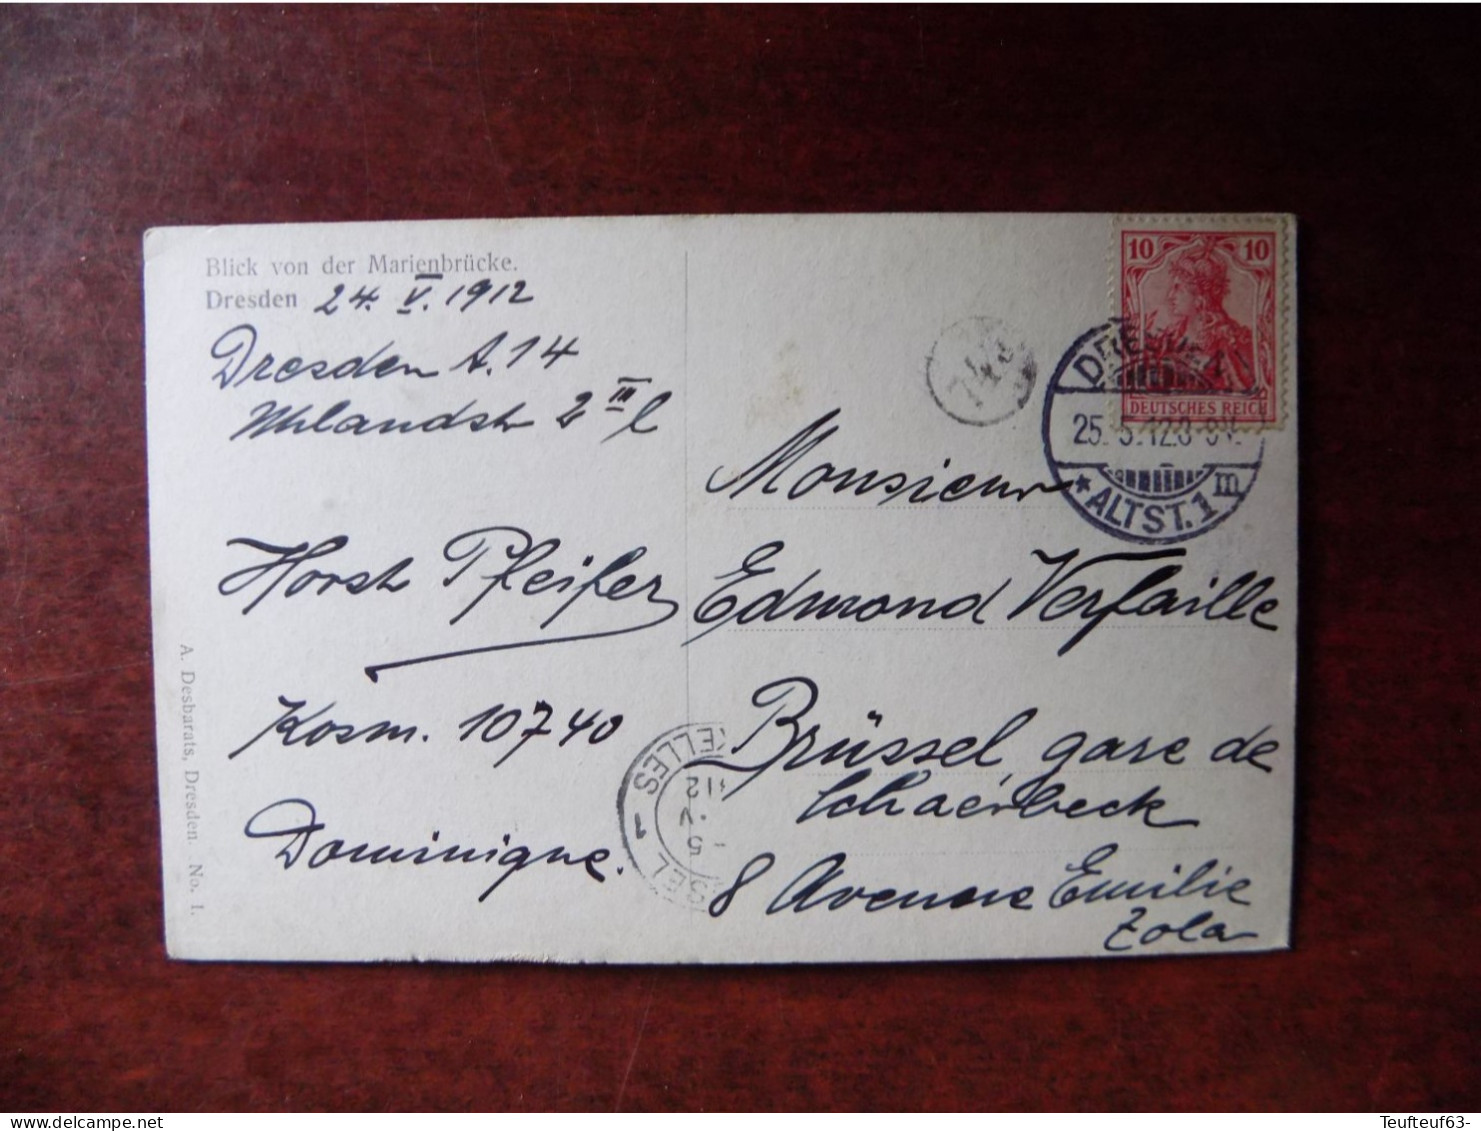 Blick von der Marienbrücke.
Dresden 24. V. 1912
Dresden A. 14
Uhlandstr 2 III l
Horst Pfeifer
Kosm. 10740
Dominique.
A. Desbarats, Dresden. No. 1.
10 10
DEUTSCHES REICH
DRESDEN
25. 5. 12. 8-9V.
* ALTST. 1 m
Monsieur
Edmond Verfaille
Brüssel, gare de
Schaerbeck
8 Avenue Emilie
Zola
delcampe.net
Teufteuf63-